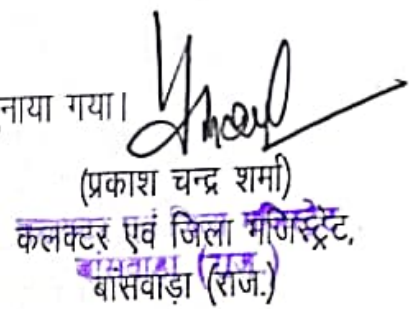 नाया गया।
(प्रकाश चन्द्र शर्मा)
कलक्टर एवं जिला मजिस्ट्रेट,
बांसवाड़ा (राज.)